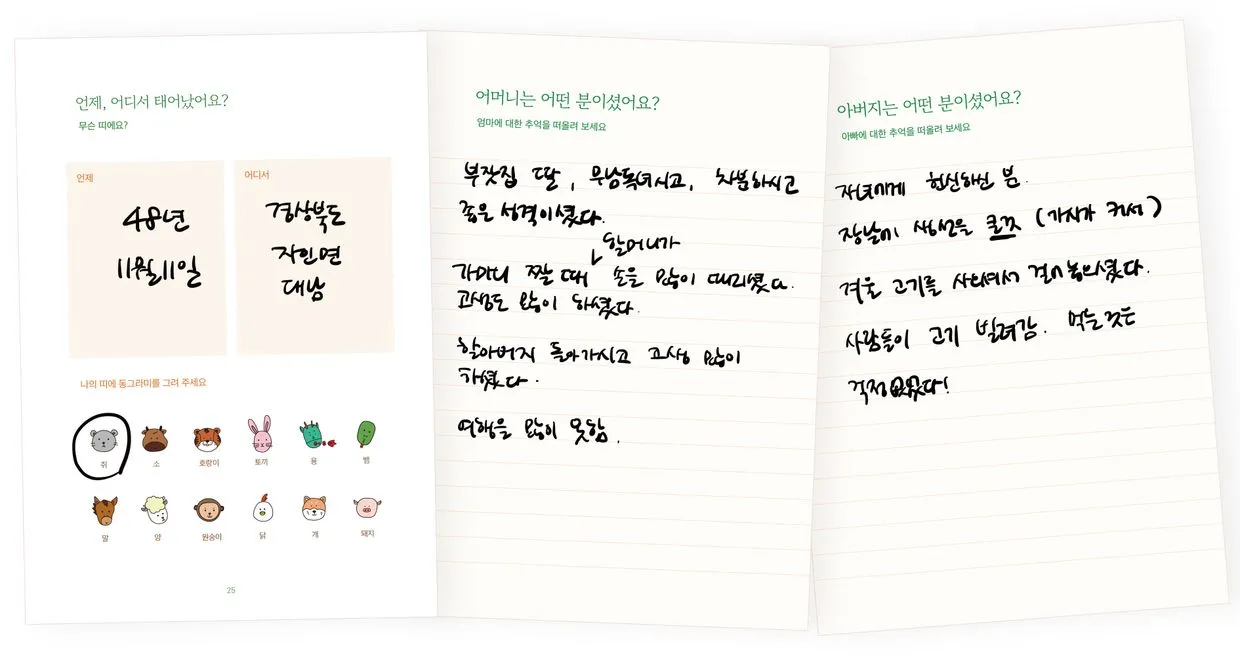 언제, 어디서 태어났어요?
무슨 띠예요?
언제
48년
11월 11일
어디서
경상북도
자인면
대남
나의 띠에 동그라미를 그려 주세요
쥐 소 호랑이 토끼 용 뱀
말 양 원숭이 닭 개 돼지
25
어머니는 어떤 분이셨어요?
엄마에 대한 추억을 떠올려 보세요
부잣집 딸, 무남독녀시고, 차분하시고
좋은 성격이셨다.
할머니가
가마니 짤 때 손을 많이 때리셨다.
고생도 많이 하셨다.
할아버지 돌아가시고 고생 많이
하셨다.
여행을 많이 못함.
아버지는 어떤 분이셨어요?
아빠에 대한 추억을 떠올려 보세요
자녀에게 헌신하신 분.
장날에 생선을 (가시가 커서)
겨울 고기를 사오셔서 걸어놓으셨다.
사람들이 고기 빌려감. 먹는 것은
걱정없었다!